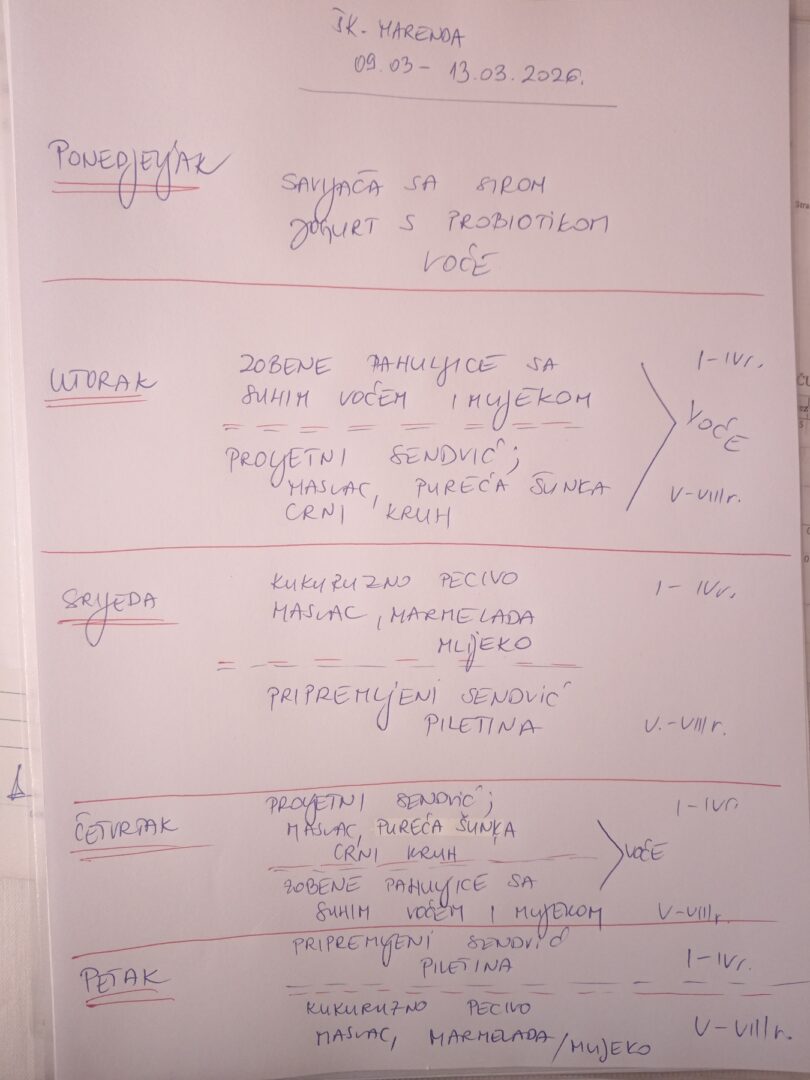 ŠK. MARENDA
09.03 - 13.03.2026.
PONEDJELJAK
SAVIJAČA SA SIROM
JOGURT S PROBIOTIKOM
VOĆE
UTORAK
ZOBENE PAHULJICE SA
SUHIM VOĆEM I MLIJEKOM
I-IVr.
PROLJETNI SENDVIĆ;
MASLAC, PUREĆA ŠUNKA
CRNI KRUH
V-VIIIr.
VOĆE
SRIJEDA
KUKURUZNO PECIVO
MASLAC, MARMELADA
MLIJEKO
I-IVr.
PRIPREMLJENI SENDVIĆ
PILETINA
V.-VIIIr.
ČETVRTAK
PROLJETNI SENDVIĆ;
MASLAC, PUREĆA ŠUNKA
CRNI KRUH
I-IVr.
ZOBENE PAHULJICE SA
SUHIM VOĆEM I MLIJEKOM
V-VIIIr.
VOĆE
PETAK
PRIPREMLJENI SENDVIĆ
PILETINA
I-IVr.
KUKURUZNO PECIVO
MASLAC, MARMELADA/MLIJEKO
V-VIIIr.